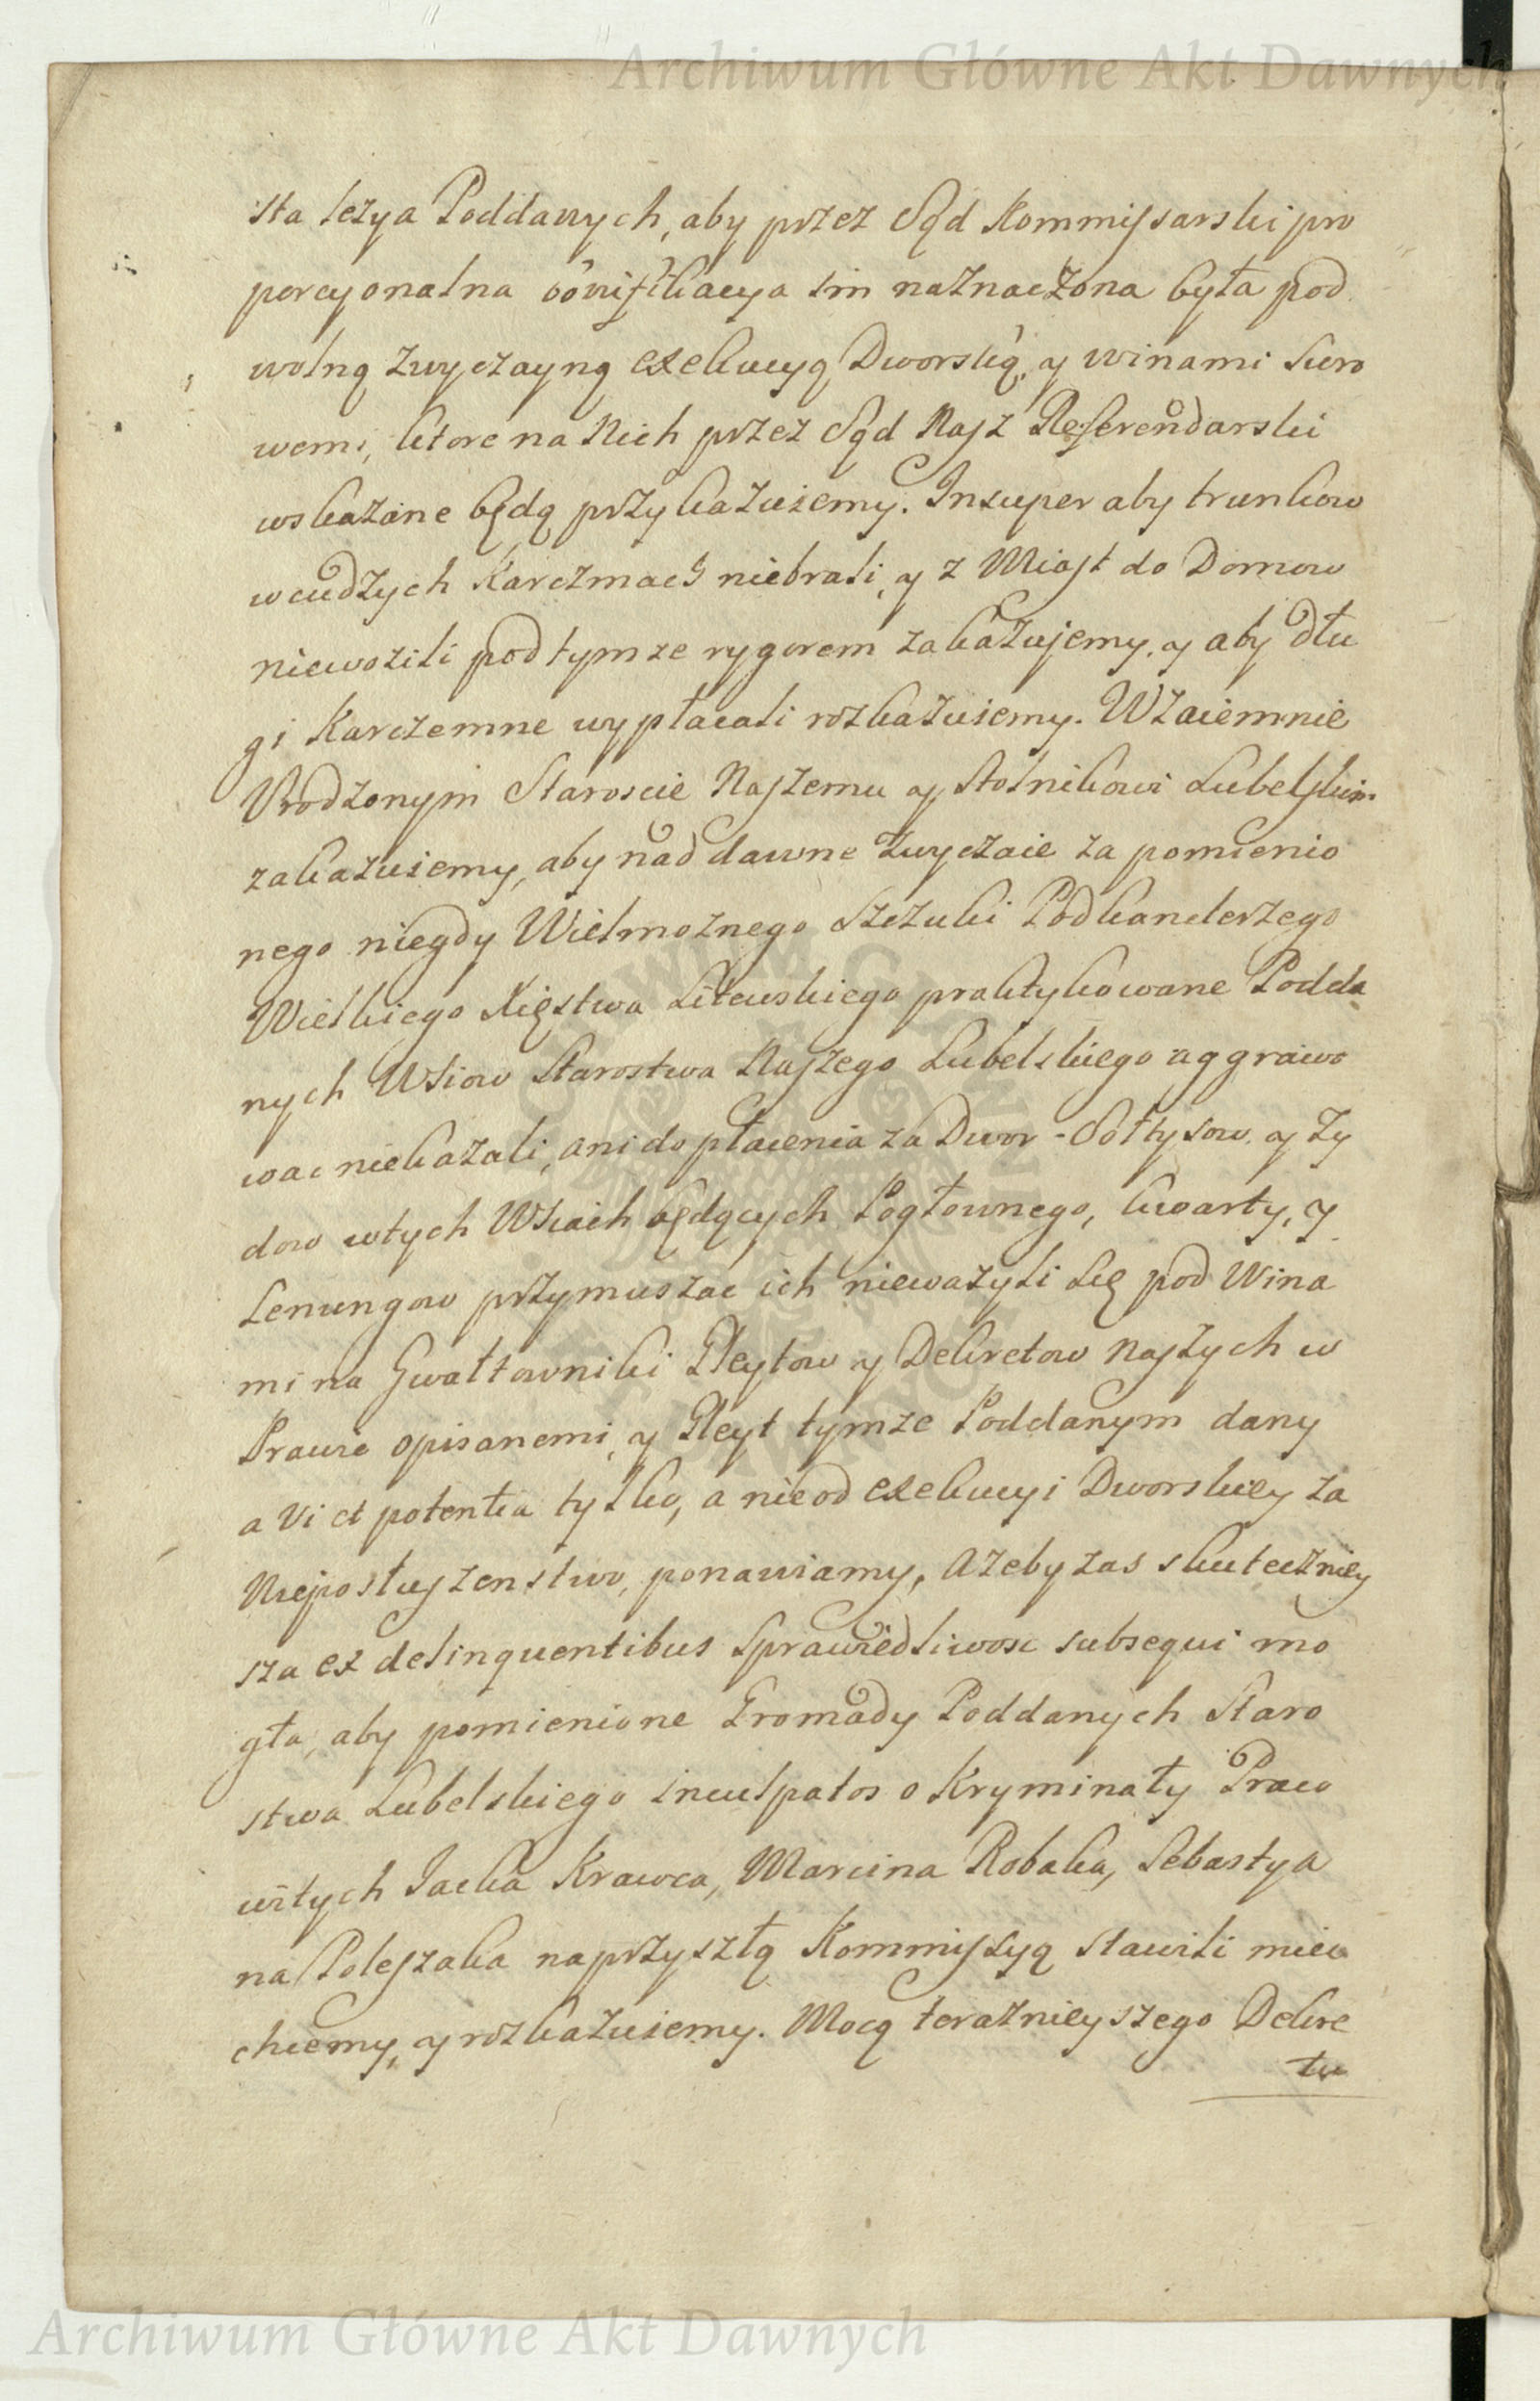 Archiwum Główne Akt Dawnych
sta lezya Poddanych, aby przez Sąd Kommissarski pro
porcyonalna bonifikacya im naznaczona była pod
wolną zwyczayną exekucyą Dworską, y winami suro
wemi, ktore na Nich przez Sąd Nasz Referendarski
wskazane będą przykazuiemy. Insuper aby trunkow
w cudzych Karczmach niebrali, y z Miast do Domow
niewozili pod tymze rygorem zakazujemy, y aby dłu
gi Karczemne wypłacali rozkazuiemy. Wzaiemnie
Urodzonym Staroscie Naszemu y Stolnikowi Lubelskim
zakazuiemy, aby nad dawne zwyczaie za pomienio
nego niegdy Wielmoznego Szczuki Podkanclerzego
Wielkiego Xięstwa Litewskiego praktykowane Podda
nych Wsiow Starostwa Naszego Lubelskiego aggrawo
wac niekazali, ani do płacenia za Dwor - Sołtysow, y Zy
dow w tych Wsiach będących Pogłownego, kwarty, y
Lenungow przymuszac ich niewazyli się pod Wina
mi na Gwałtowniki Gleytow y Dekretow Naszych w
Prawie opisanemi, y Gleyt tymze Poddanym dany
a vi et potentia tylko, a nie od exekucyi Dworskiey za
Nieposłuszenstwo, ponawiamy, Azeby zas skuteczniey
sza ex delinquentibus sprawiedliwosc subsequi mo
gła, aby pomienione Gromady Poddanych Staro
stwa Lubelskiego inculpatos o Kryminały Praco
witych Jacka Krawca, Marcina Robaka, Sebastya
na Poleszaka na przyszłą Kommissyą stawili miec
chcemy, y rozkazuiemy. Mocą teraznieyszego Dekre
tu
Archiwum Główne Akt Dawnych